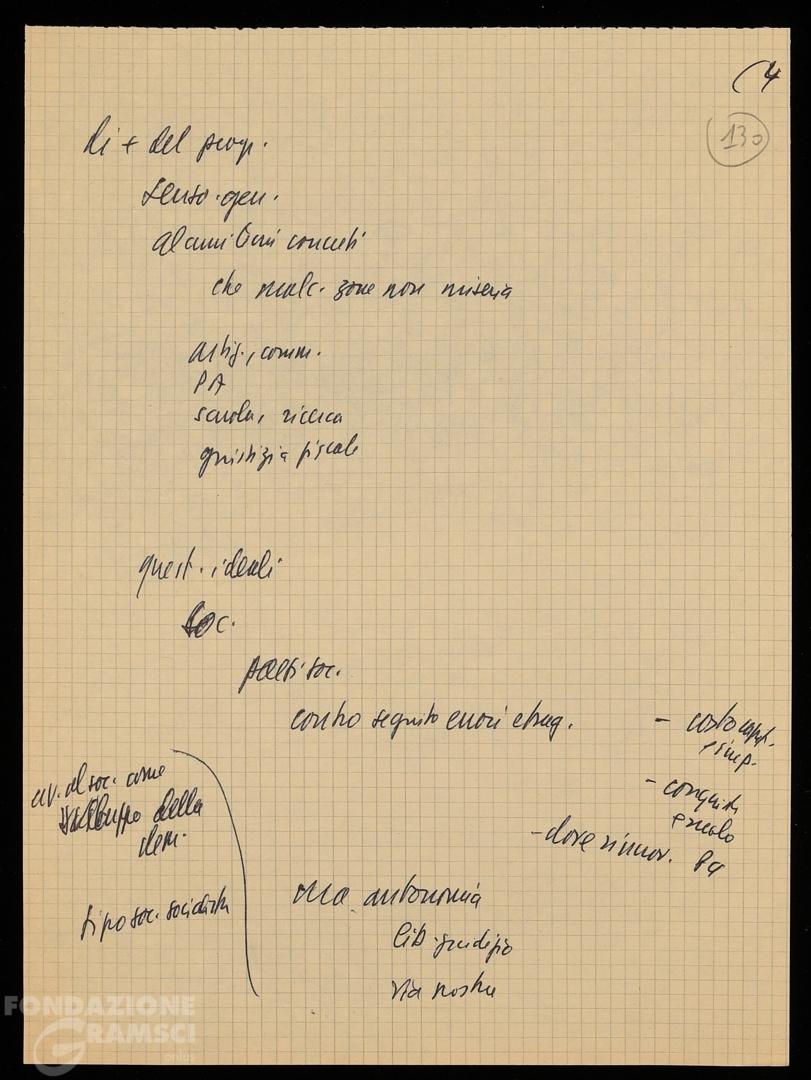 (4
130
di + del progr.
senso. gen.
alcuni temi concreti
che molt. zone non miseria
artig., comm.
PA
scuola, ricerca
giustizia fiscale
quest. ideali
soc.
paesi soc.
contro seguito errori e trag.
- costo capit.
e imp.
- conquiste
ruolo
- dove rinnov.
av. al soc. come
sviluppo della
dem.
tipo soc. socialista
ma autonomia
lib. giudizio
via nostra
FONDAZIONE
GRAMSCI
onlus